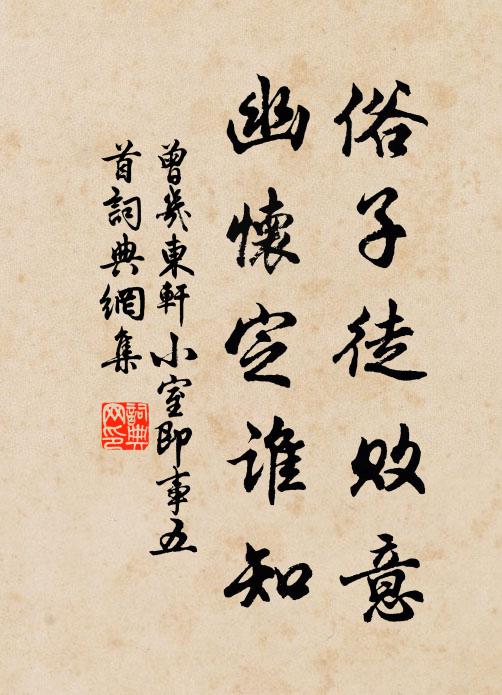 俗子徒败意
幽懷定谁知
曾幾東軒小室即事五
首詞典網集
詞典
网印